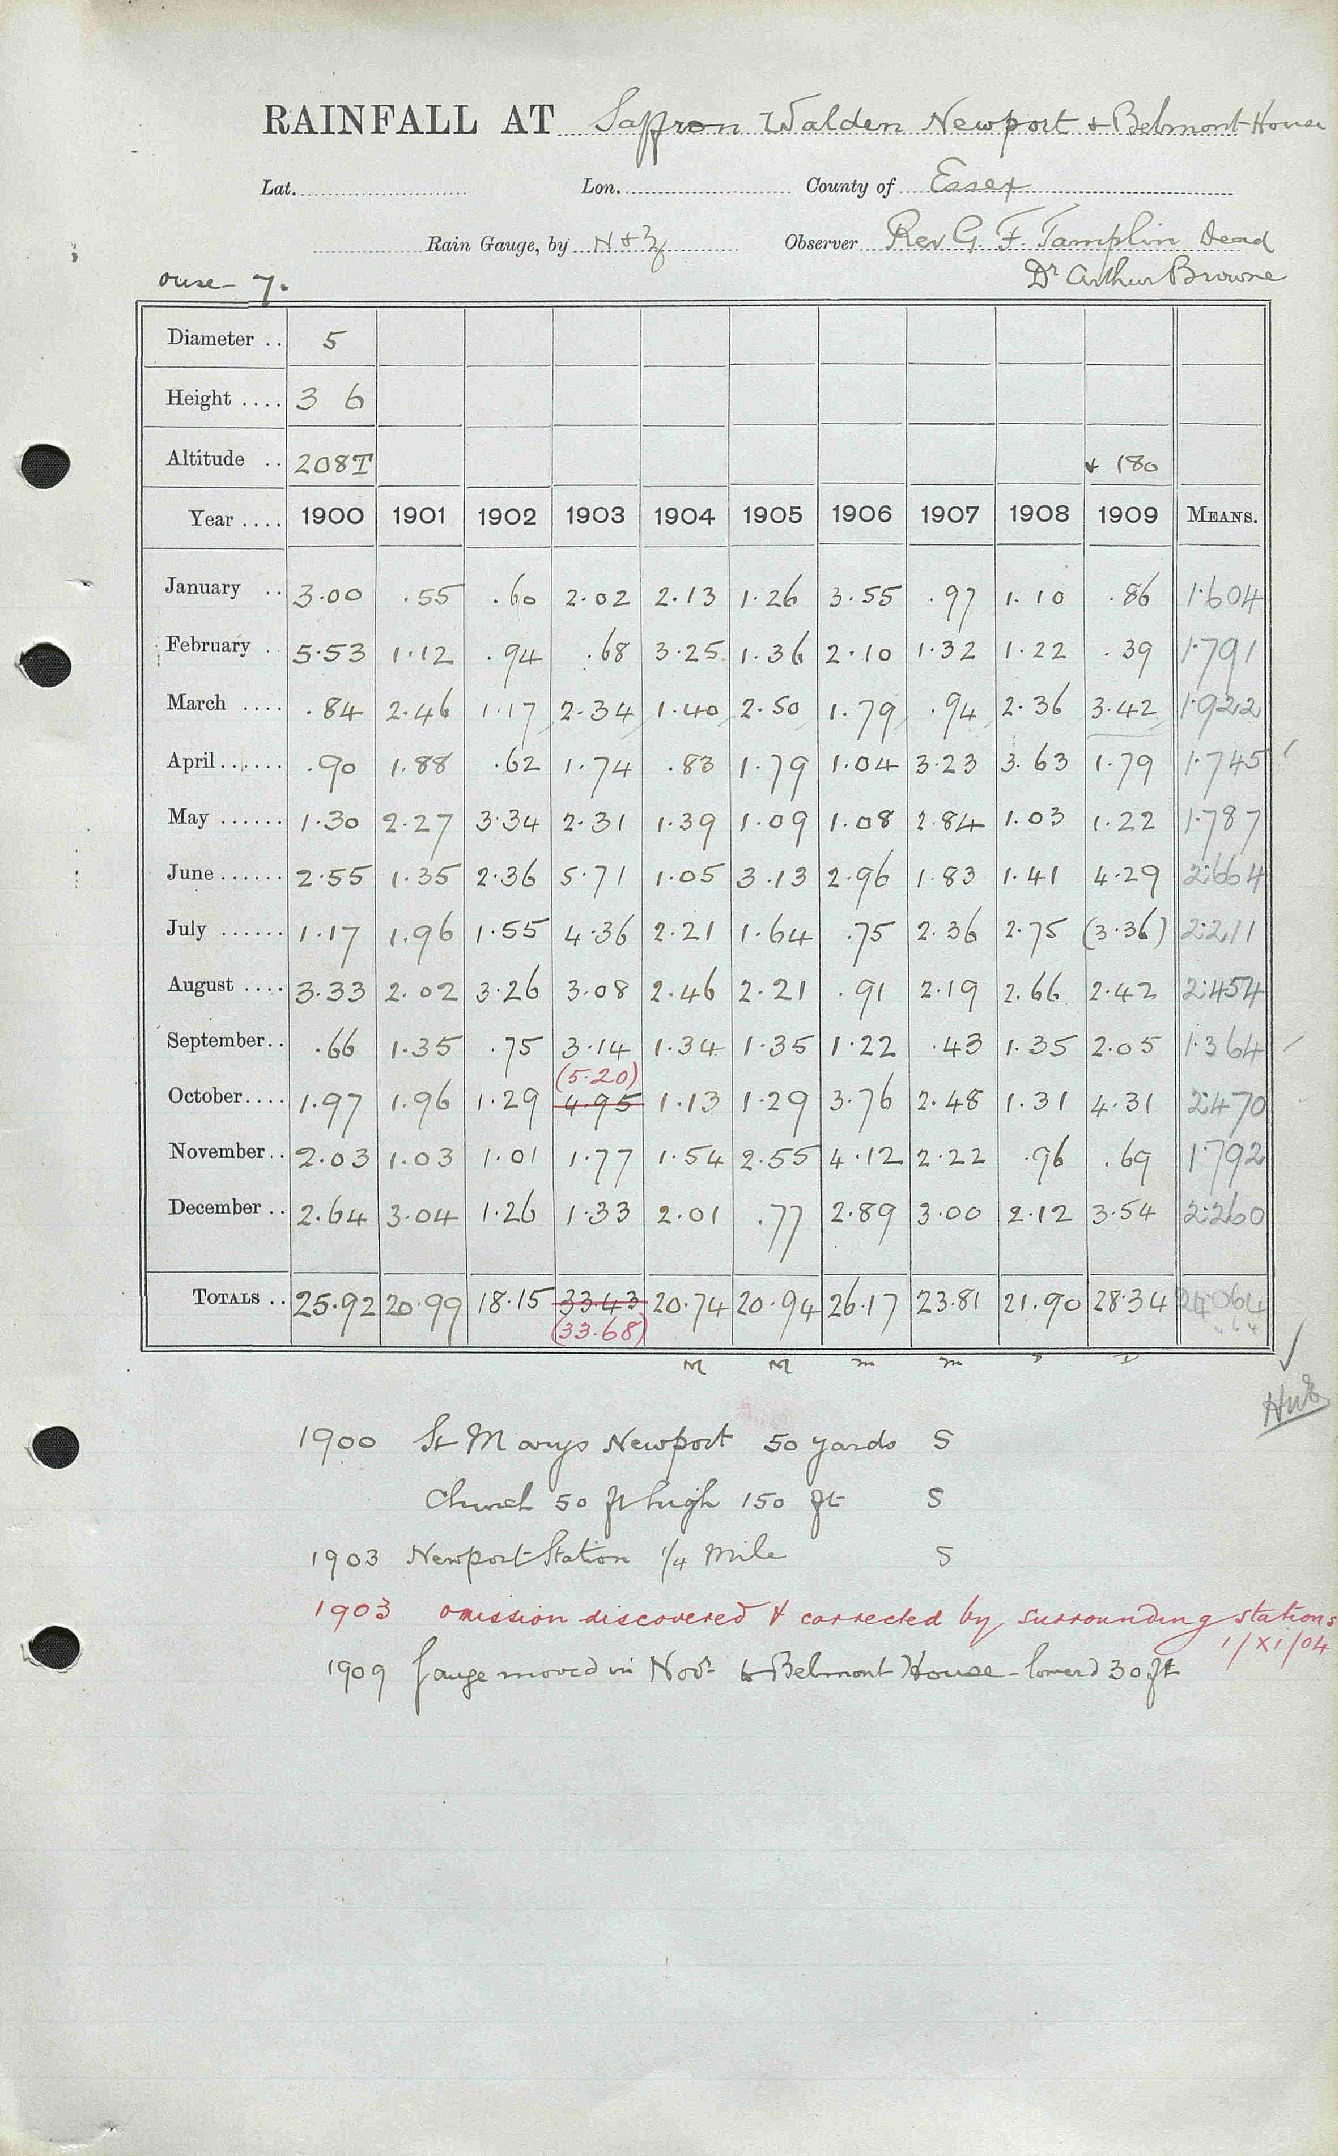 RAINFALL AT Saffron Walden Newport & Belmont House
Lat. Lon. County of Essex
Rain Gauge, by N & Z Observer Rev G. F. Tamplin Dead
Ouse - 7. Dr Arthur Browne
Diameter .. 5
Height .... 3 6
Altitude .. 208T + 180
Year .... 1900 1901 1902 1903 1904 1905 1906 1907 1908 1909 MEANS.
January .. 3.00 .55 .60 2.02 2.13 1.26 3.55 .97 1.10 .86 1.604
February .. 5.53 1.12 .94 .68 3.25 1.36 2.10 1.32 1.22 .39 1.791
March .... .84 2.46 1.17 2.34 1.40 2.50 1.79 .94 2.36 3.42 1.922
April ...... .90 1.88 .62 1.74 .83 1.79 1.04 3.23 3.63 1.79 1.745
May ...... 1.30 2.27 3.34 2.31 1.39 1.09 1.08 2.84 1.03 1.22 1.787
June ...... 2.55 1.35 2.36 5.71 1.05 3.13 2.96 1.83 1.41 4.29 2.664
July ...... 1.17 1.96 1.55 4.36 2.21 1.64 .75 2.36 2.75 (3.36) 2.211
August .... 3.33 2.02 3.26 3.08 2.46 2.21 .91 2.19 2.66 2.42 2.454
September.. .66 1.35 .75 3.14 1.34 1.35 1.22 .43 1.35 2.05 1.364
(5.20)
October.... 1.97 1.96 1.29 4.95 1.13 1.29 3.76 2.48 1.31 4.31 2.470
November.. 2.03 1.03 1.01 1.77 1.54 2.55 4.12 2.22 .96 .69 1.792
December .. 2.64 3.04 1.26 1.33 2.01 .77 2.89 3.00 2.12 3.54 2.260
TOTALS .. 25.92 20.99 18.15 33.43 20.74 20.94 26.17 23.81 21.90 28.34 24.064
(33.68)
1900 St Marys Newport 50 yards S
Church 50 ft high 150 ft S
1903 Newport Station 1/4 Mile S
1903 omission discovered & corrected by surrounding stations
1/XI/04
1909 Gauge moved in Novr to Belmont House - lowered 30 ft